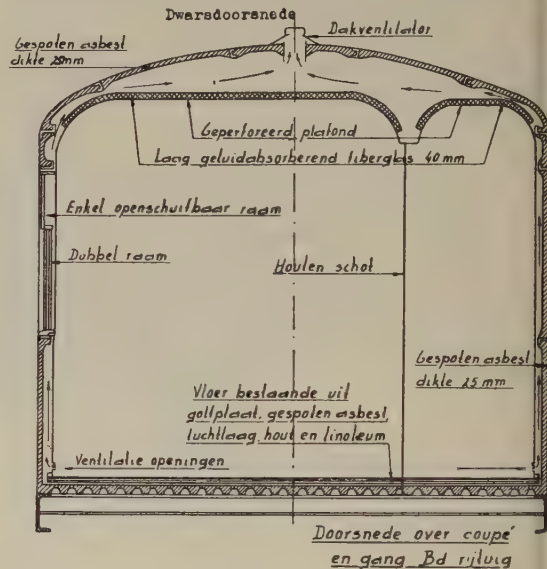 Dwarsdoorsnede
Dakventilator
Gespoten asbest
dikte 20mm
Geperforeerd plafond
Laag geluidabsorberend fiberglas 40 mm
Enkel openschuifbaar raam
Dubbel raam
Houten schot
Gespoten asbest
dikte 25 mm
Vloer bestaande uit
golfplaat, gespoten asbest,
luchtlaag, hout en linoleum
Ventilatie openingen
Doorsnede over coupé
en gang Bd rijtuig